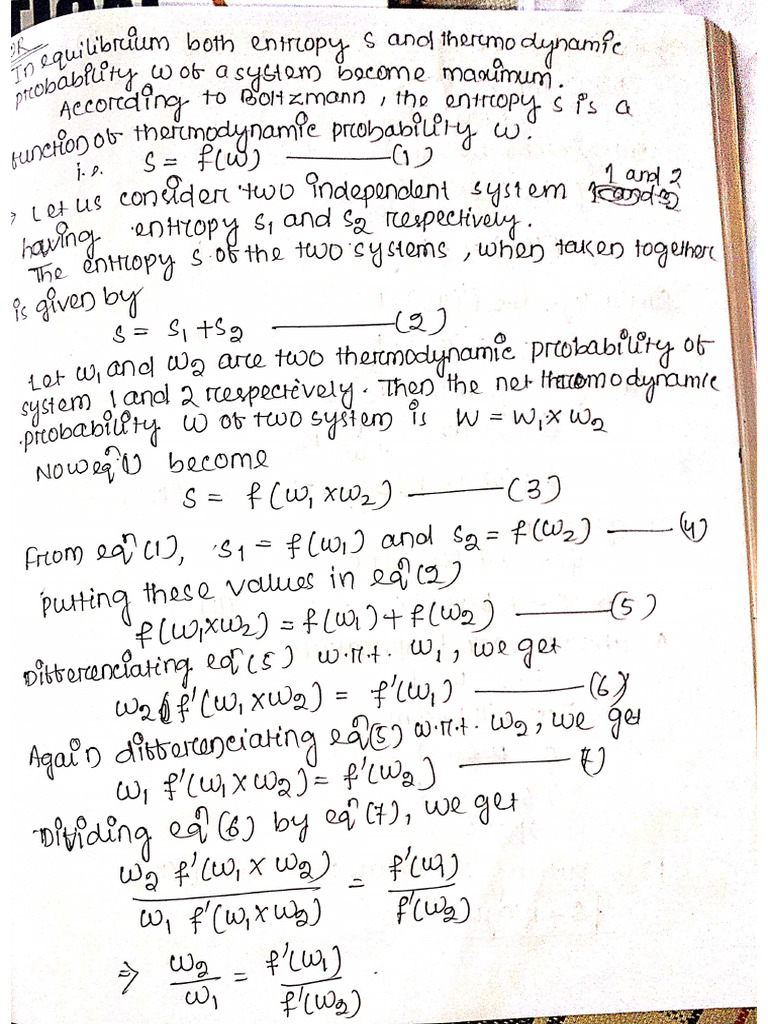 OR
In equilibrium both entropy S and thermodynamic
probability ω of a system become maximum.
According to Boltzmann, the entropy S is a
function of thermodynamic probability ω.
i.e. S = f(ω) ——— (1)
1 and 2
→ Let us consider two independent system
having entropy S₁ and S₂ respectively.
The entropy S of the two systems, when taken together
is given by
S = S₁ + S₂ ——— (2)
Let ω₁ and ω₂ are two thermodynamic probability of
system 1 and 2 respectively. Then the net thermodynamic
probability ω of two system is W = W₁ × ω₂
Now eqⁿ(1) become
S = f(ω₁ × ω₂) ——— (3)
From eqⁿ(1), S₁ = f(ω₁) and S₂ = f(ω₂) ——— (4)
putting these values in eqⁿ(2)
f(ω₁×ω₂) = f(ω₁) + f(ω₂) ——— (5)
Differenciating eqⁿ(5) w.r.t. ω₁, we get
ω₂ f'(ω₁ × ω₂) = f'(ω₁) ——— (6)
Again differenciating eqⁿ(5) w.r.t. ω₂, we get
ω₁ f'(ω₁ × ω₂) = f'(ω₂) ——— (7)
Dividing eqⁿ(6) by eqⁿ(7), we get
ω₂ f'(ω₁ × ω₂) / ω₁ f'(ω₁ × ω₂) = f'(ω₁) / f'(ω₂)
⇒ ω₂ / ω₁ = f'(ω₁) / f'(ω₂).